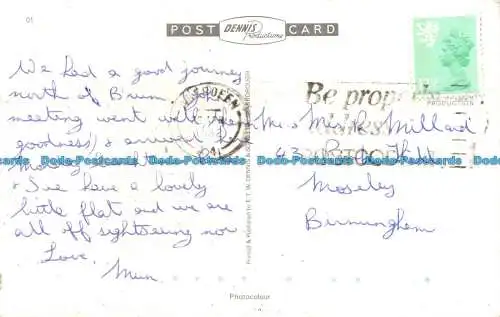 01
POST DENNIS Productions CARD
We had a good journey
north of Brum. Open
meeting went well (thank
goodness) & arrived
& Sue have a lovely
little flat and we are
all off sightseeing now
Love,
Mum
ABERDEEN
Be properly
addressed
POSTCODE
PRODUCTION
Mr & Mrs R Millard
43
Moseley
Birmingham
Printed & Published by E. T. W. DENNIS & SONS LTD. SCARBOROUGH
Photocolour
Dodo-Postcards Dodo-Postcards Dodo-Postcards Dodo-Postcards Dodo-Postcards